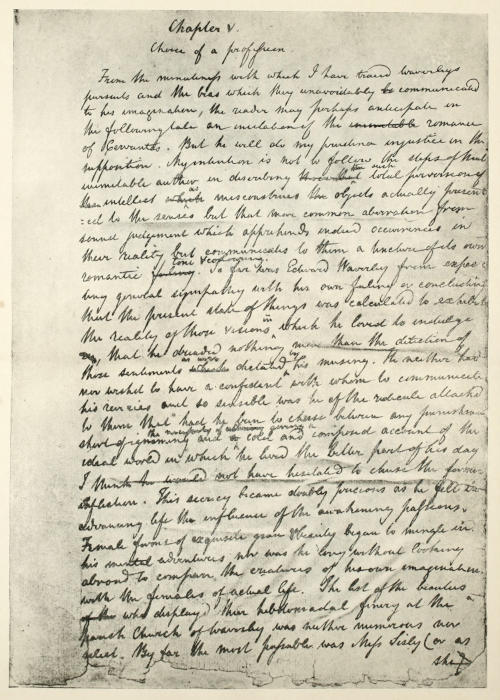 Chapter V.
Choice of a profession.
From the minuteness with which I have traced Waverley's
pursuits and the bias which they unavoidably communicated
to his imagination, the reader may perhaps anticipate in
the following tale an imitation of the inimitable romance
of Cervantes. But he will do my prudence injustice in the
supposition. My intention is not to follow the steps of that
inimitable author in describing such total perversion of
intellect as misconstrues the objects actually present
=ed to the senses but that more common aberration from
sound judgement which apprehends indeed occurrences in
their reality but communicates to them a tincture of its own
romantic tone & colouring. So far was Edward Waverley from expec
ting general sympathy with his own feelings or concluding
that the present state of things was calculated to exhibit
the reality of those visions in which he loved to indulge
that he dreaded nothing more than the detection of
those sentiments as were dictated by his musing. He neither had
nor wished to have a confident with whom to communicate
his reveries and so sensible was he of the ridicule attached
to them that had he been to chuse between any punishment
short of ignominy and the necessity of giving a cold and composed account of the
ideal world in which he lived the better part of his day
I think he would not have hesitated to chuse the former
infliction. This secrecy became doubly precious as he felt in
advancing life the influence of the awakening passions.
Female forms of exquisite grace & beauty began to mingle in
his mental adventures nor was he long without looking
abroad to compare the creatures of his own imagination
with the females of actual life. The list of the beauties
who displayed their hebdomadal finery at the
parish Church of Waverley was neither numerous nor
select. By far the most passable was Miss Sisly (or as
she